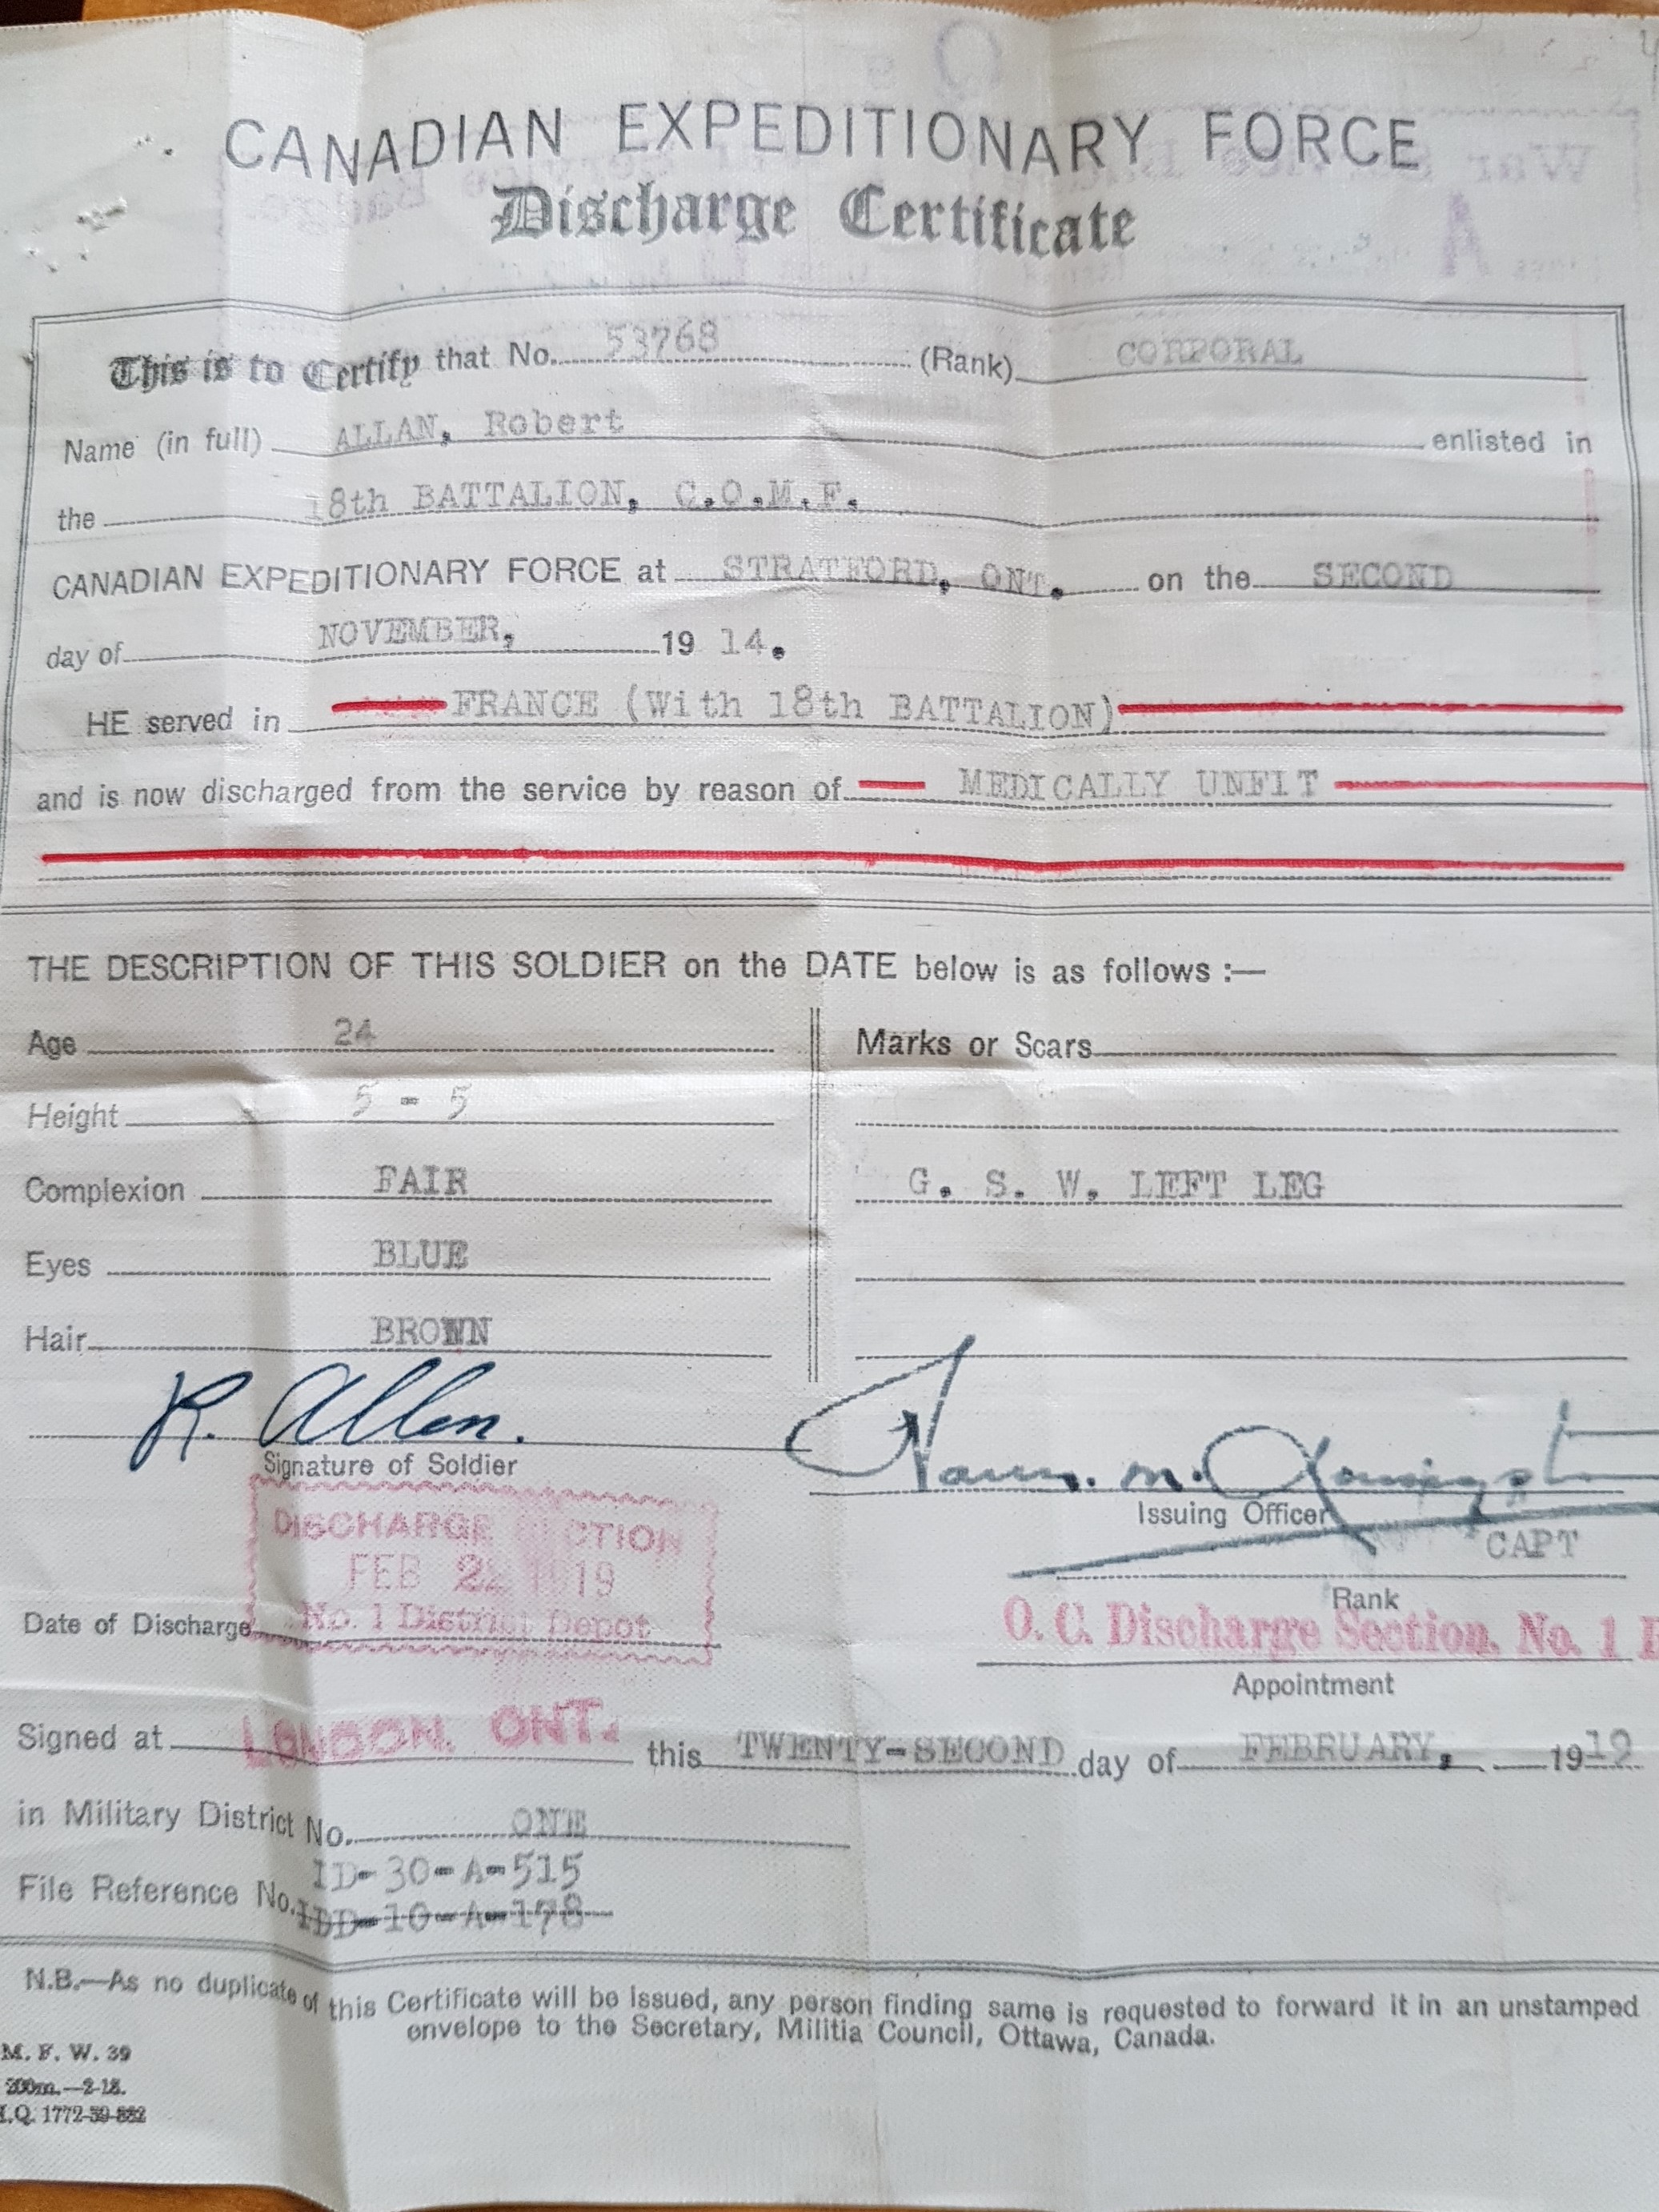 CANADIAN EXPEDITIONARY FORCE
Discharge Certificate
This is to Certify that No. 53768 (Rank) CORPORAL
Name (in full) ALLAN, Robert enlisted in
the 18th BATTALION, C.O.M.F.
CANADIAN EXPEDITIONARY FORCE at STRATFORD, ONT. on the SECOND
day of NOVEMBER, 19 14.
HE served in FRANCE (With 18th BATTALION)
and is now discharged from the service by reason of MEDICALLY UNFIT
THE DESCRIPTION OF THIS SOLDIER on the DATE below is as follows :—
Age 24
Height 5 - 5
Complexion FAIR
Eyes BLUE
Hair BROWN
Marks or Scars
G. S. W. LEFT LEG
R. Allen.
Signature of Soldier
Issuing Officer
CAPT
Rank
O. C. Discharge Section, No. 1
Appointment
DISCHARGE
FEB 22 1919
No. 1 District Depot
Date of Discharge
Signed at LONDON, ONT. this TWENTY-SECOND day of FEBRUARY, 1919
in Military District No. ONE
ID-30-A-515
File Reference No. IDD-10-A-178
N.B.—As no duplicate of this Certificate will be issued, any person finding same is requested to forward it in an unstamped
envelope to the Secretary, Militia Council, Ottawa, Canada.
M. F. W. 39
200m.—2-18.
H.Q. 1772-39-882